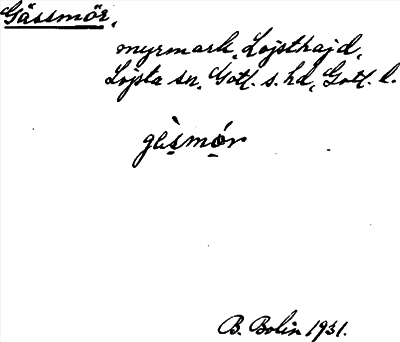 Gässmör,
myrmark, Lojsthajd,
Lojsta sn, Gotl. s. hd, Gotl. l.
gèsmór
B. Bolin 1931.